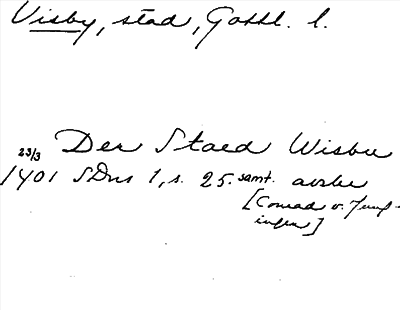 Visby, stad, Gottl. l.
Der Staed Wisbu
23/3
1401 SDns 1, s. 25. samt. avskr
[Conrad v. Jung-
ingen]